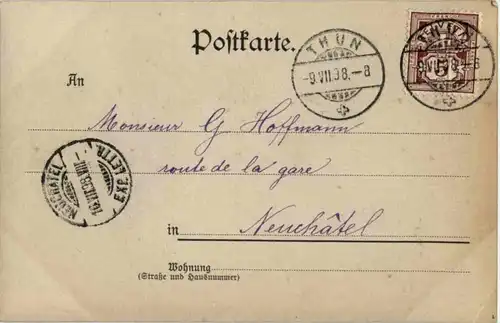 Postkarte.
THUN
-9.VII.98.-8
THUN
-9.VII.98.-8
5
An
Monsieur G Hoffmann
route de la gare
NEUCHÂTEL
EXP. LETTR.
in Neuchâtel
Wohnung
(Straße und Hausnummer)